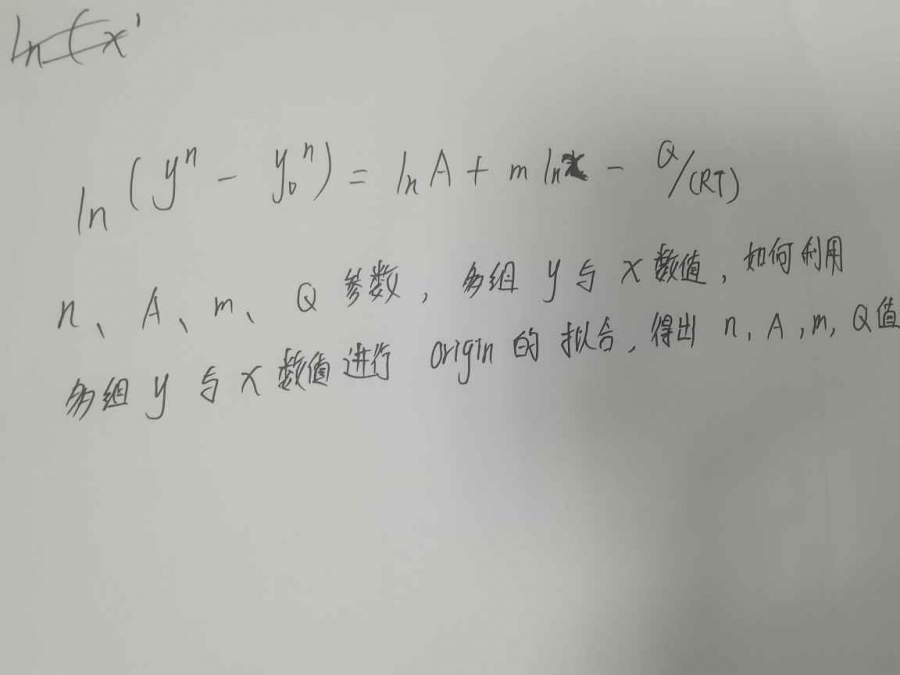 ln(x'
ln(yⁿ - y₀ⁿ) = lnA + m lnx - Q/(RT)
n、A、m、Q 参数，多组 y 与 x 数值，如何利用
多组 y 与 x 数值进行 origin 的拟合，得出 n、A,m,Q值